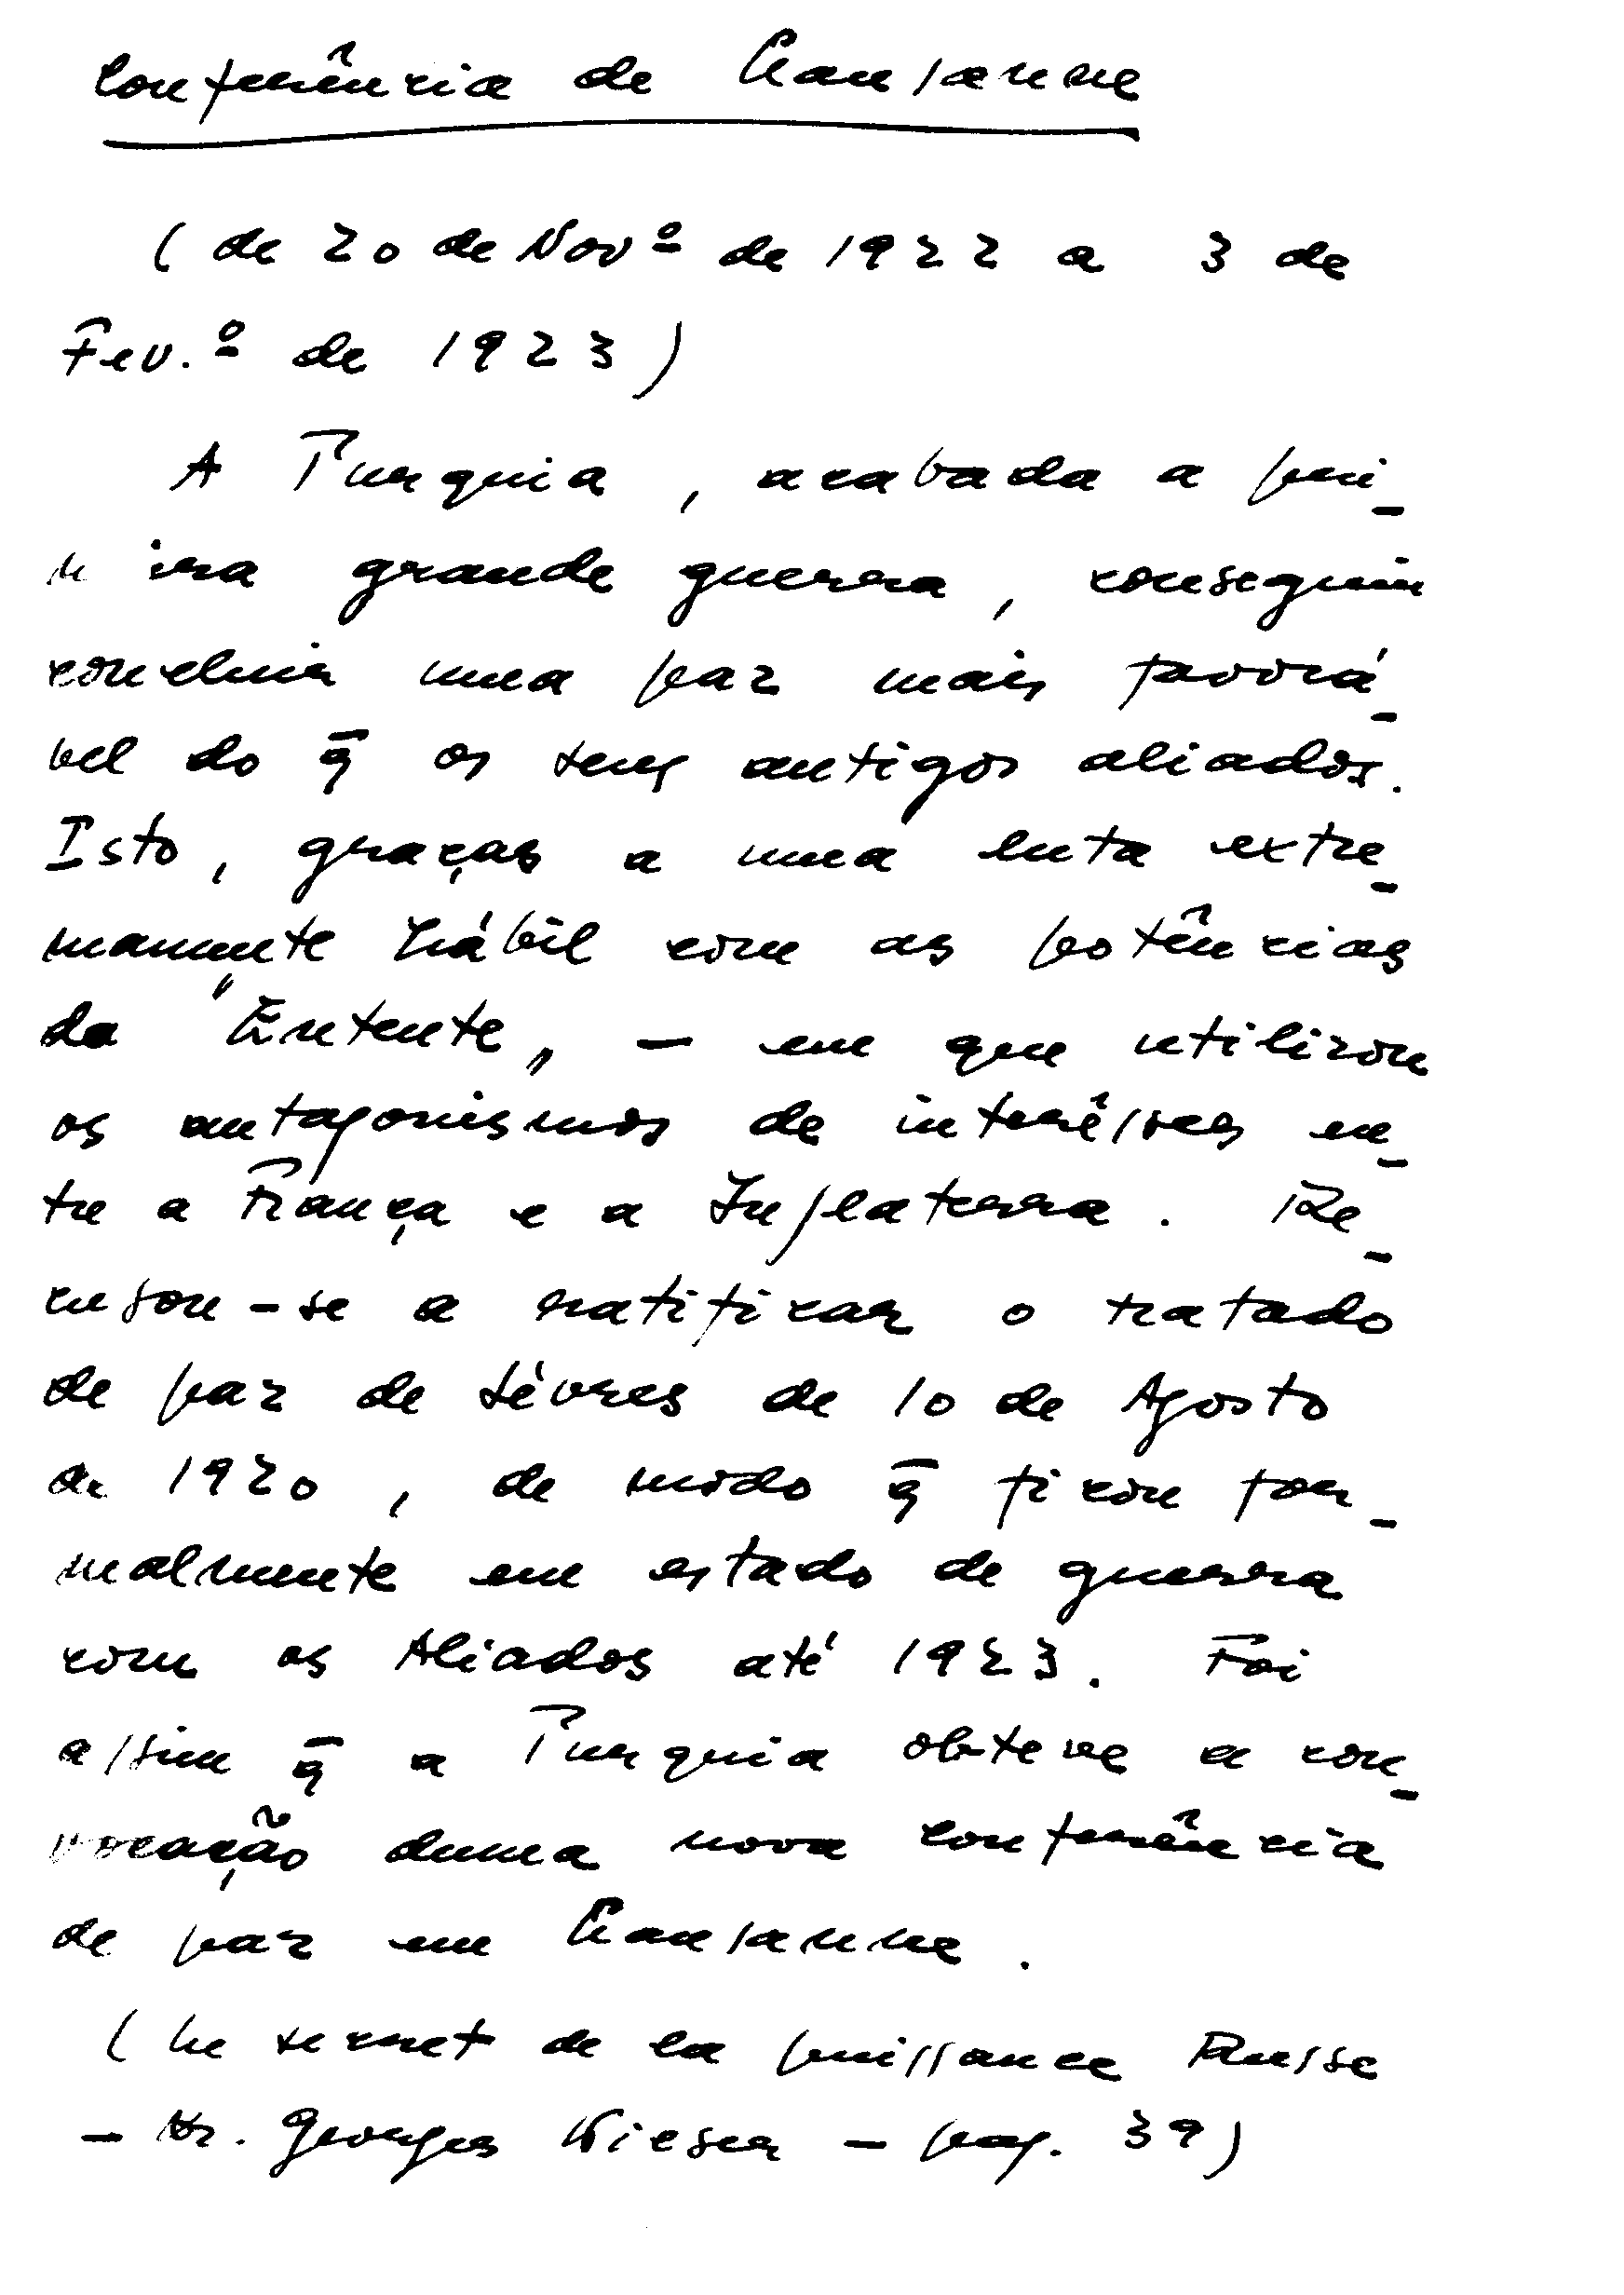 Conferência de Lausanne
( de 20 de Novº de 1922 a 3 de
Fev.º de 1923 )
A Turquia , acabada a pri-
meira grande guerra , conseguiu
concluir uma paz mais favorá-
vel do q̄ os seus antigos aliados.
Isto , graças a uma luta extre-
mamente hábil com as potências
da "Entente" , — em que utilizou
os antagonismos de interêsses en-
tre a França e a Inglaterra . Re-
cusou-se a ratificar o tratado
de paz de Sèvres de 10 de Agosto
de 1920 , de modo q̄ ficou for-
malmente em estado de guerra
com os Aliados até 1923. Foi
assim q̄ a Turquia obteve a con-
vocação duma nova conferência
de paz em Lausanne .
( Le secret de la puissance Russe
— Dr. Georges Wieser — pag. 39 )